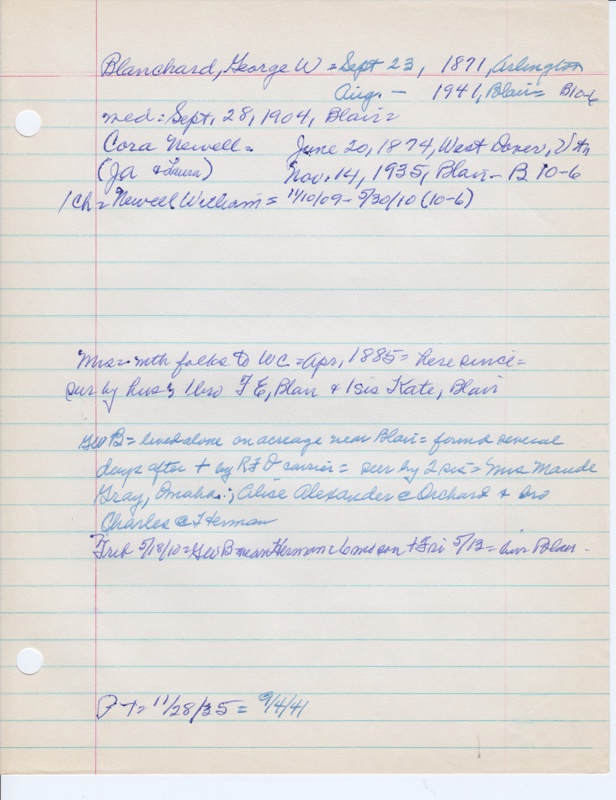 Blanchard, George W = Sept 23, 1871, Arlington
Aug. - 1941, Blair = B 10-6
med = Sept. 28, 1904, Blair =
Cora Newell = June 20, 1874, West Dover, Vtn
(Ja & Laura) Nov. 14, 1935, Blair - B 10-6
1 ch = Newell William = 11/10/09 - 5/30/10 (10-6)
Mrs = wth folks to WC = Apr, 1885 = here since =
sur by hus & 1 bro F E, Blair & 1 sis Kate, Blair
Geo B = lived alone on acreage near Blair = found several
days after + by RFD carrier = sur by 2 sis = Mrs Maude
Gray, Omaha; Alice Alexander @ Orchard & bro
Charles @ Herman
Trib 5/18/10 = Geo B near Herman = 6 mos son + Fri 5/13 = bur Blair -
P T = 11/28/35 = 9/4/41